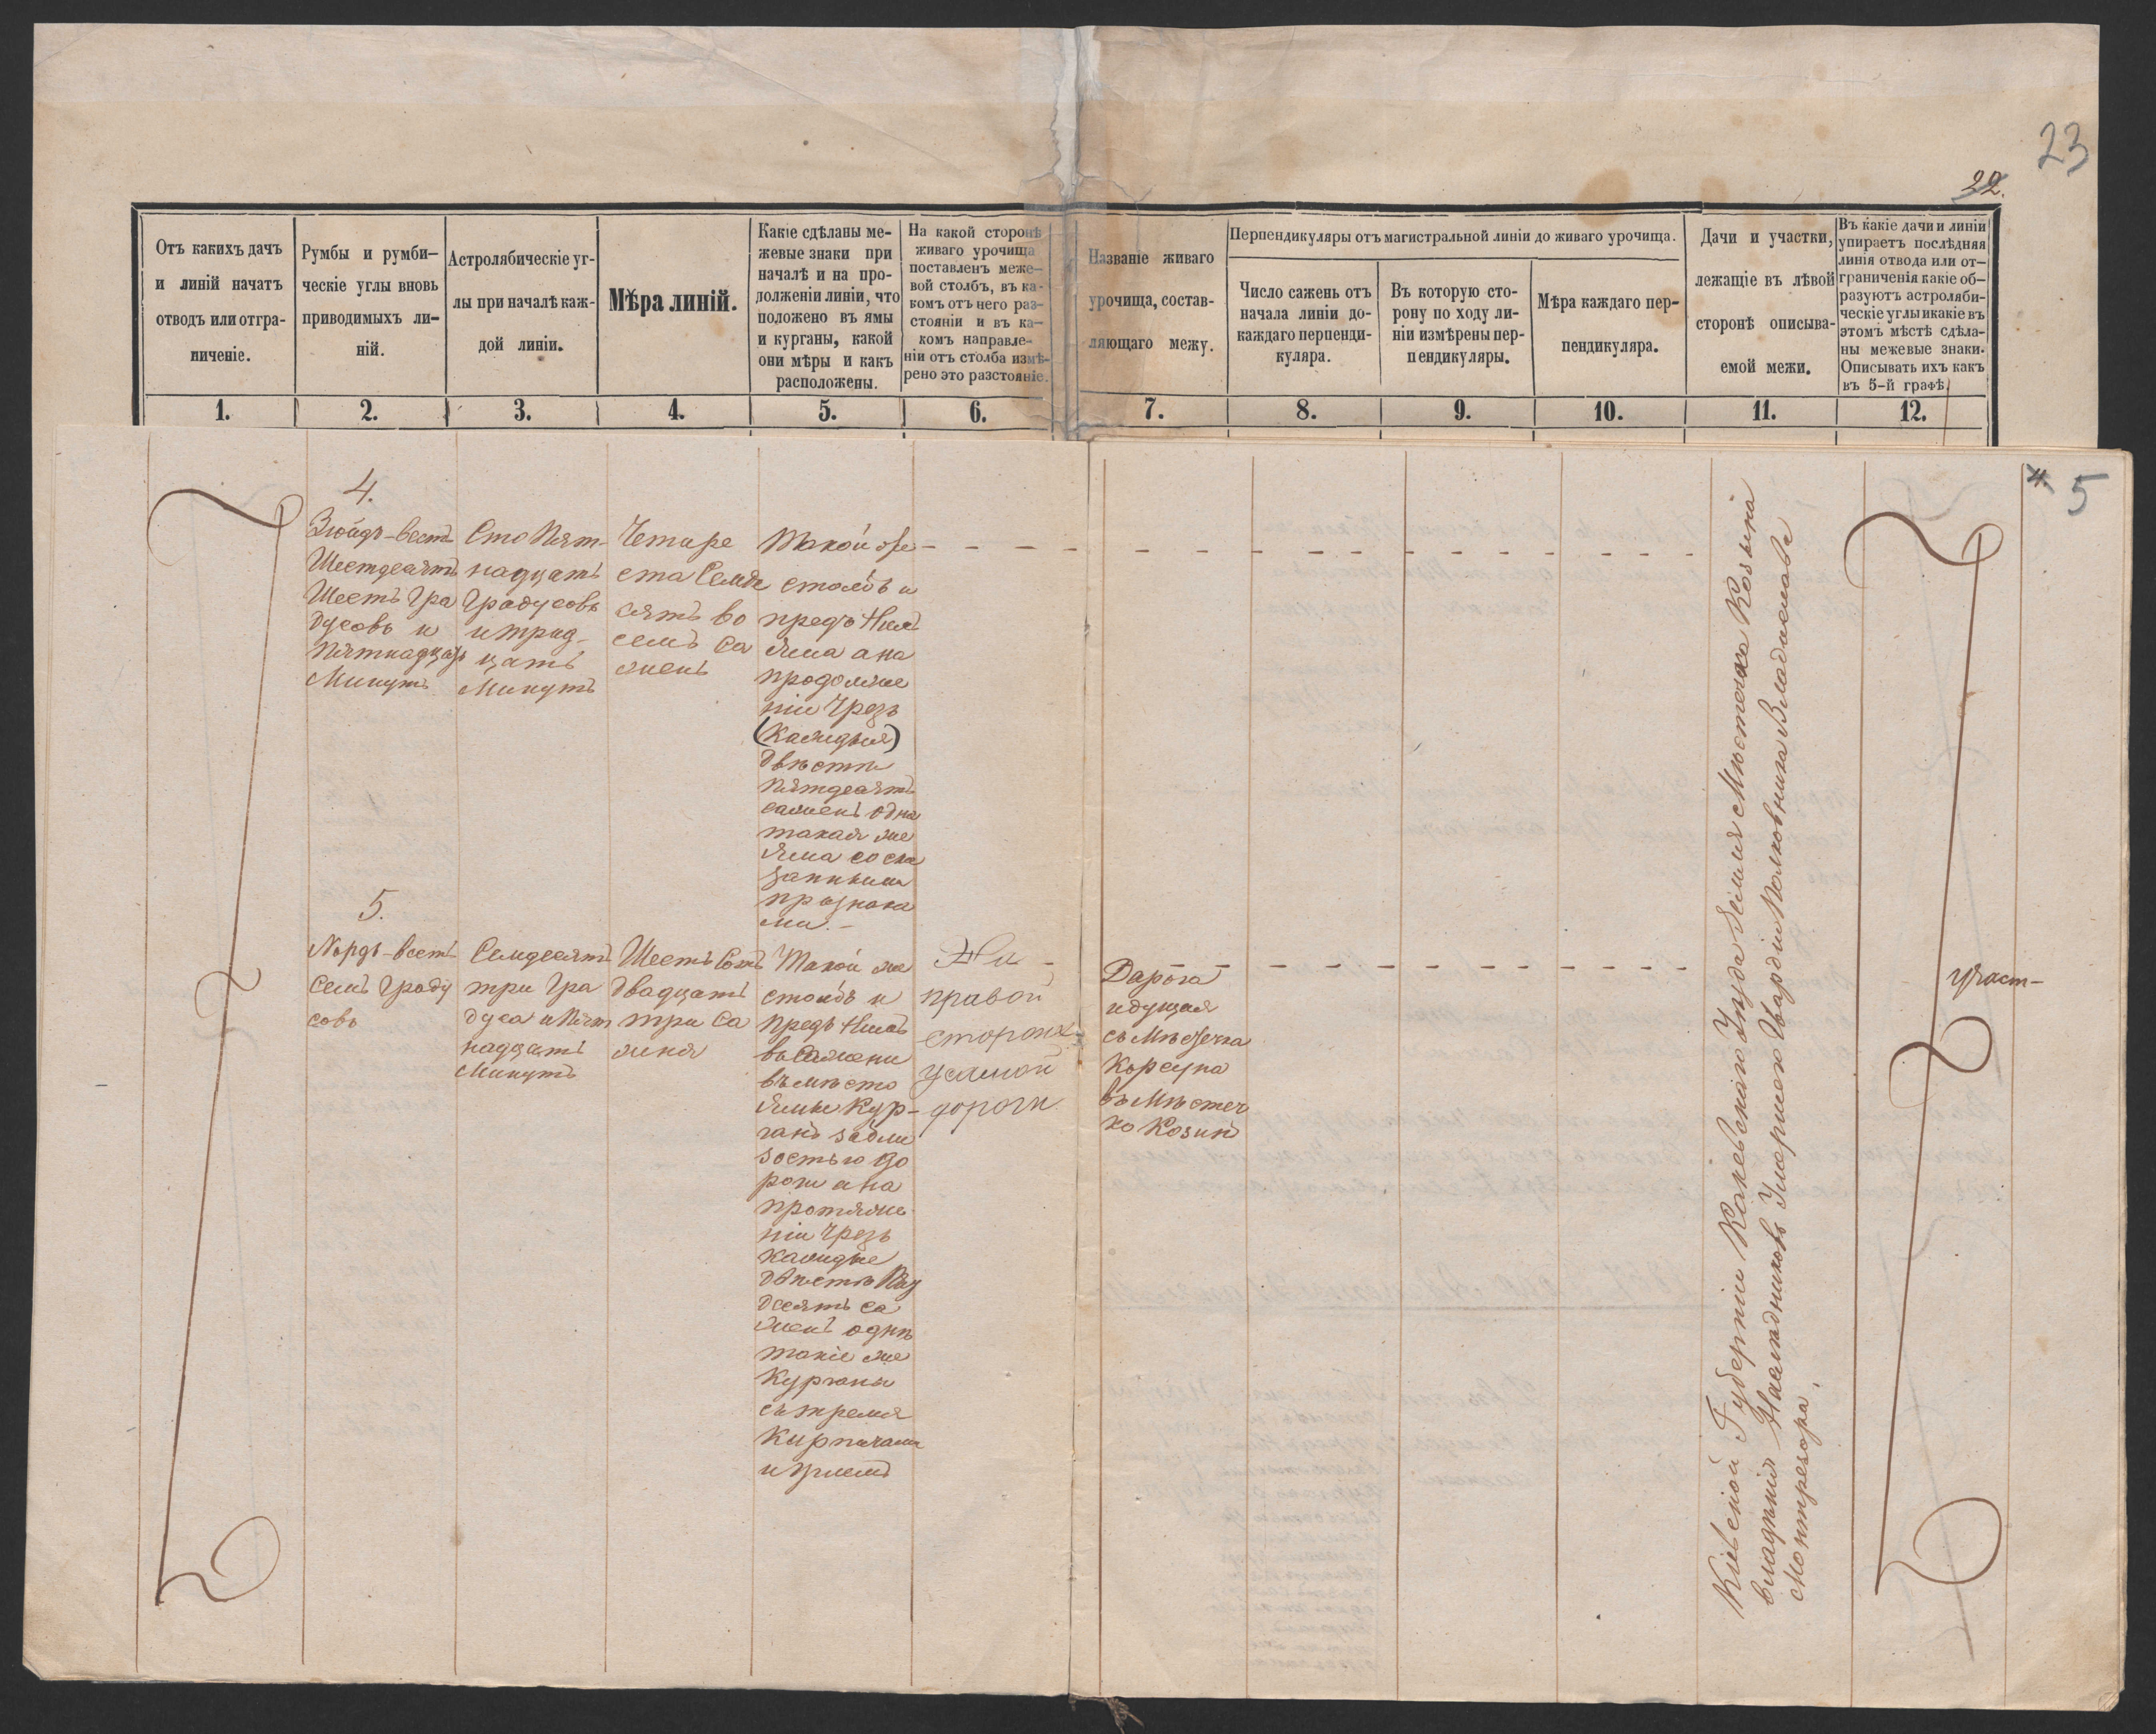 23
22.
Отъ какихъ дачъ
и линій начатъ
отводъ или отгра-
ниченіе.
Румбы и румби-
ческіе углы вновь
приводимыхъ ли-
ній.
Астролябическіе уг-
лы при началѣ каж-
дой линіи.
Мѣра линій.
Какіе сдѣланы ме-
жевые знаки при
началѣ и на про-
долженіи линіи, что
положено въ ямы
и курганы, какой
они мѣры и какъ
расположены.
На какой сторонѣ
живаго урочища
поставленъ меже-
вой столбъ, въ ка-
комъ отъ него раз-
стояніи и въ ка-
комъ направле-
ніи отъ столба измѣ-
рено это разстояніе.
Названіе живаго
урочища, состав-
ляющаго межу.
Перпендикуляры отъ магистральной линіи до живаго урочища.
Число сажень отъ
начала линіи до
каждаго перпенди-
куляра.
Въ которую сто-
рону по ходу ли-
ніи измѣрены пер-
пендикуляры.
Мѣра каждаго пер-
пендикуляра.
Дачи и участки,
лежащіе въ лѣвой
сторонѣ описыва-
емой межи.
Въ какіе дачи и линіи
упираетъ послѣдняя
линія отвода или от-
граниченія какіе об-
разуютъ астроляби-
ческіе углы и какіе въ
этомъ мѣстѣ сдѣла-
ны межевые знаки.
Описывать ихъ какъ
въ 5-й графѣ.
1. 2. 3. 4. 5. 6. 7. 8. 9. 10. 11. 12.
4. 5
4.
Зюйдъ-вестъ
Шестдесятъ
Шесть Гра
дусовъ и
пятнадцать
Минутъ
Сто Пят-
надцать
Градусовъ
и трид-
цать
Минутъ
Четыре
ста Семде
сятъ во
семъ Са
жень
Такой же
столбъ и
предъ Нимъ
Яма а на
продолже
ніи Чрезъ
(Каждыя)
двѣсти
пятдесятъ
сажень одна
такая же
Яма со ска
занными
признака
ми. –
5.
Нордъ-вестъ
Семъ Граду
совъ
Семдесятъ
три Гра
дуса и Пят
надцать
Минутъ
Шесть Сотъ
двадцать
три Са
женя
Такой же
столбъ и
предъ Нимъ
въ Сажени
въмѣсто
Ямы Кур-
ганъ забли
зостью до
роги а на
протяже
ніи Чрезъ
каждые
двѣсти Пяд
десятъ са
жень одинъ
такіе же
Курганы
съ тремя
Кирпичами
и углемъ
На
правой
сторонѣ
самой
дороги
Дарога
идущая
съ Мѣстечка
Корсуна
въ Мѣстеч
ко Козинъ
Кіевской Губерніи Каневскаго Уѣзда Земля Мѣстечка Козина
владѣнія Наслѣдниковъ Умершего Гвардіи Полковника Владислава
Монтрезора.
участ-